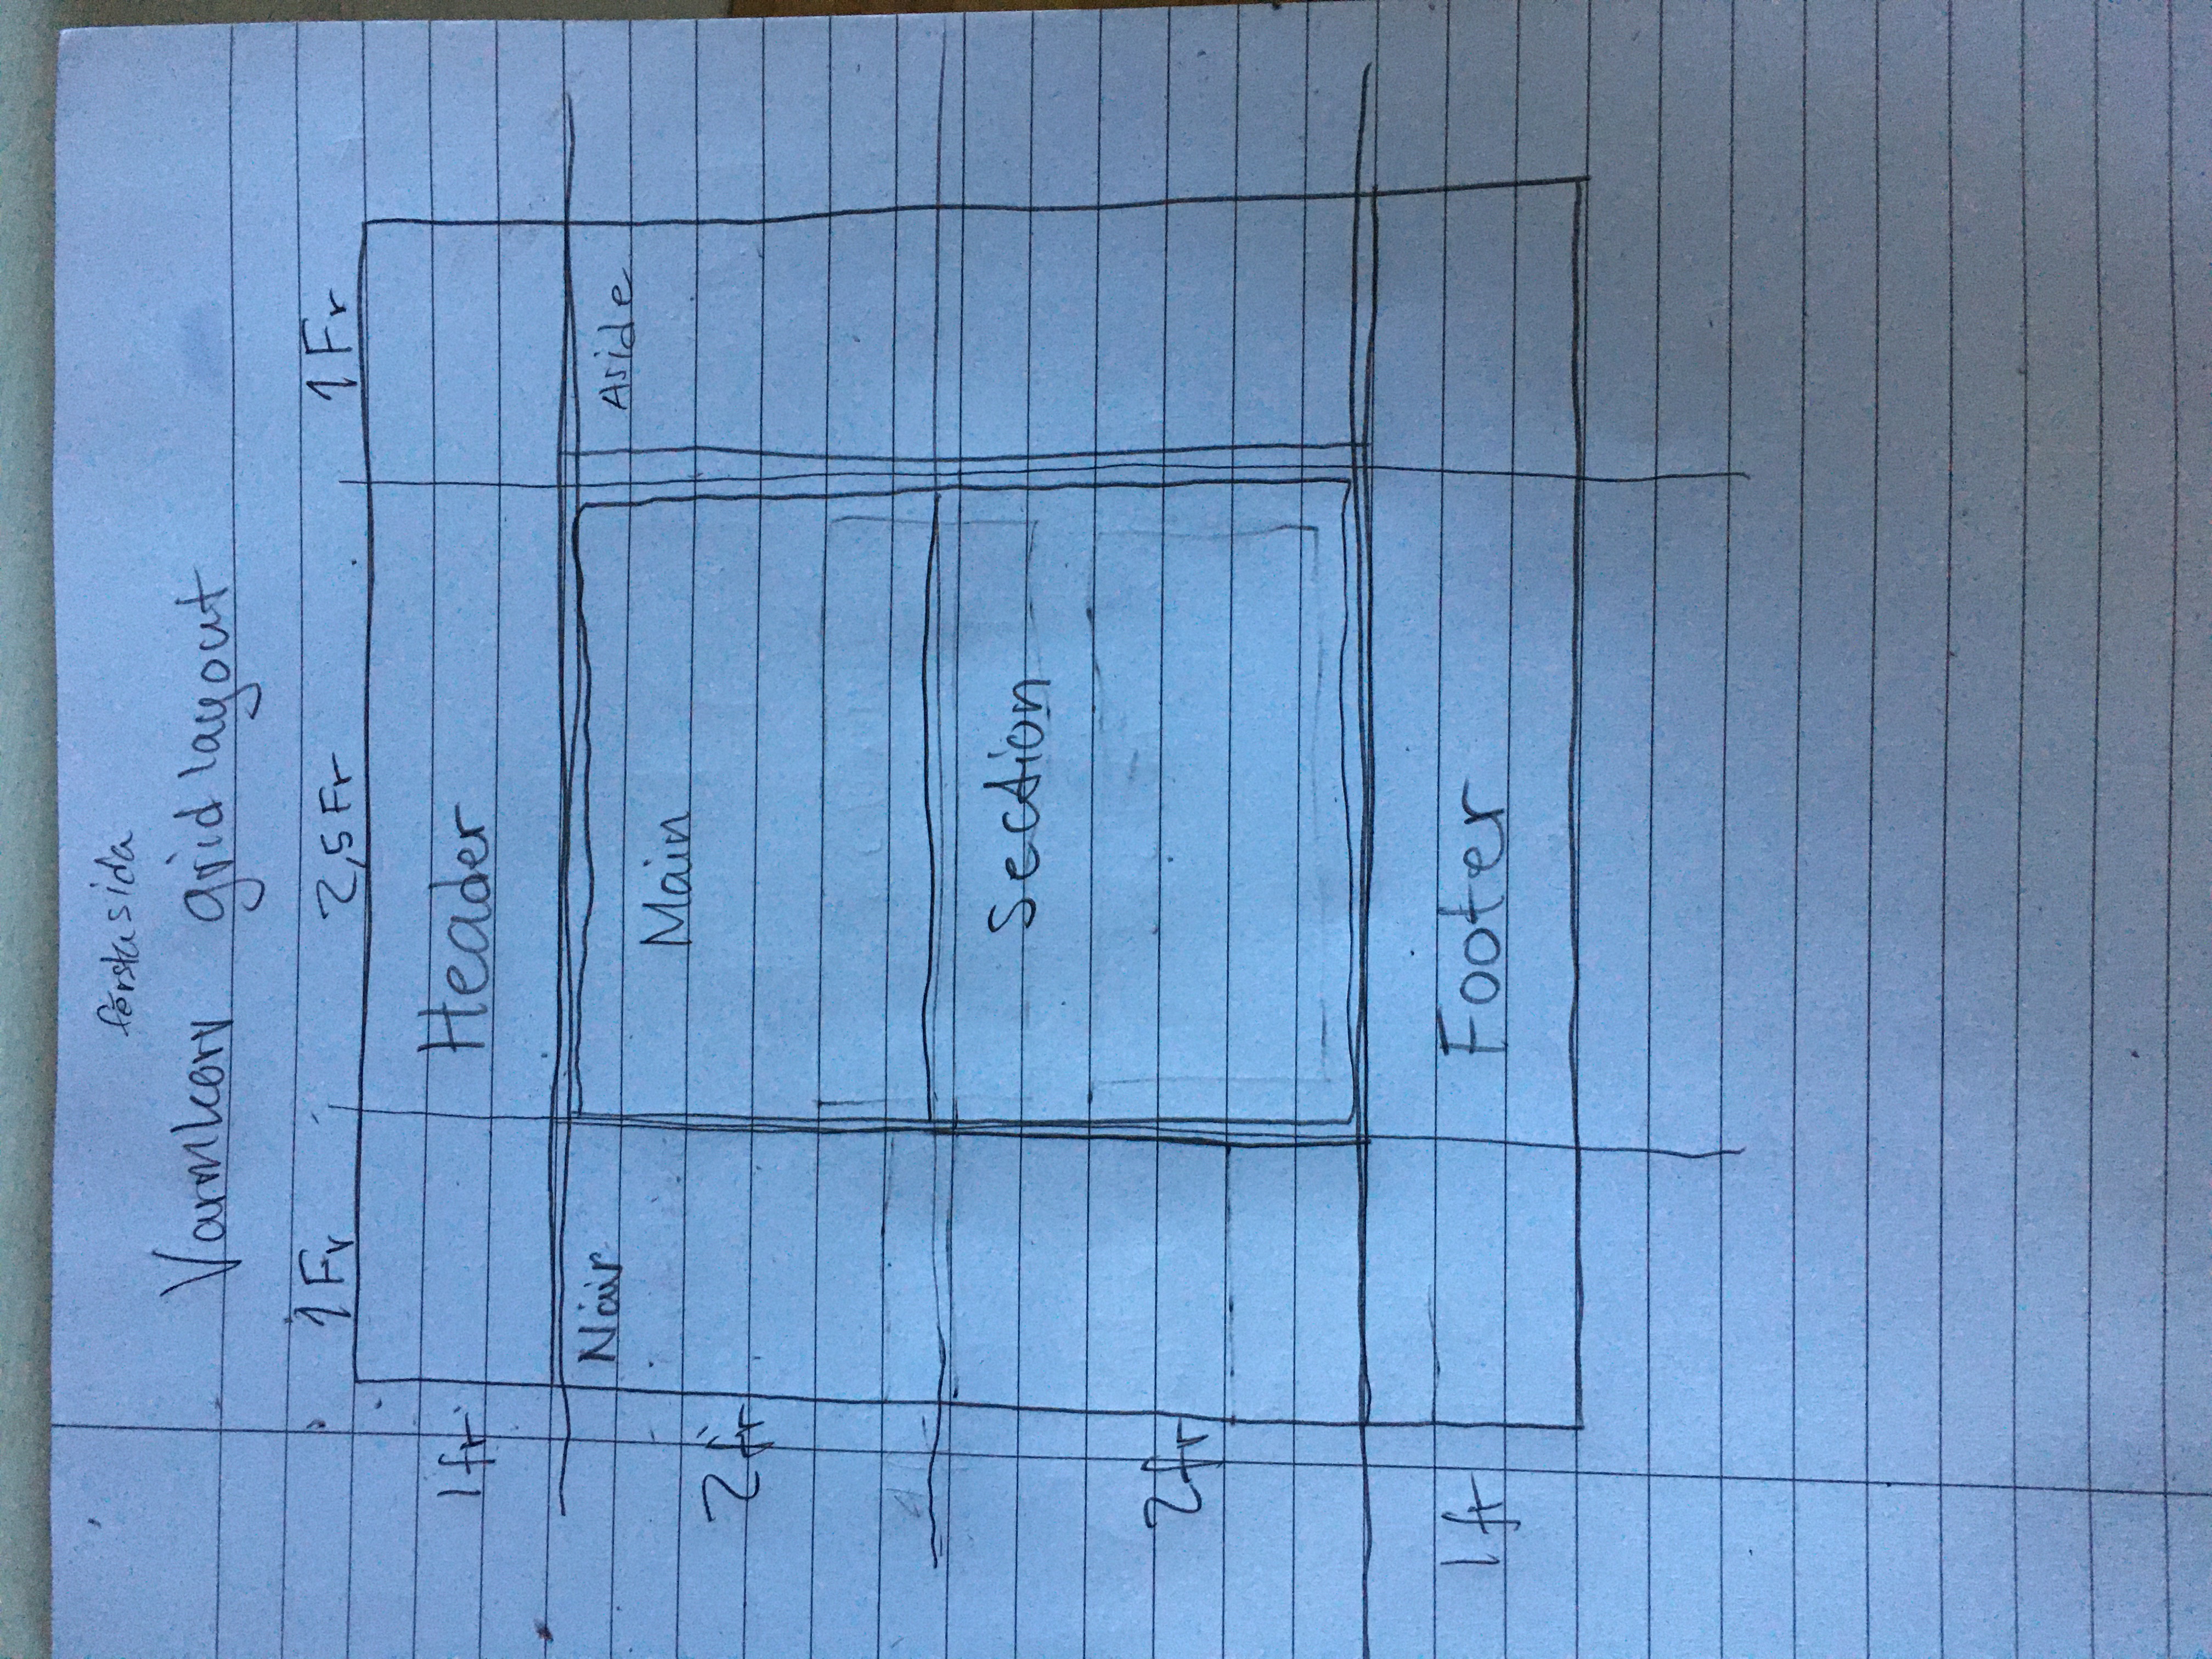 förstasida
Varmkorv grid layout
1 Fr 2,5 Fr 1 Fr
1 fr Header
Main Aside
2 fr
Section
2 fr
1 fr Footer